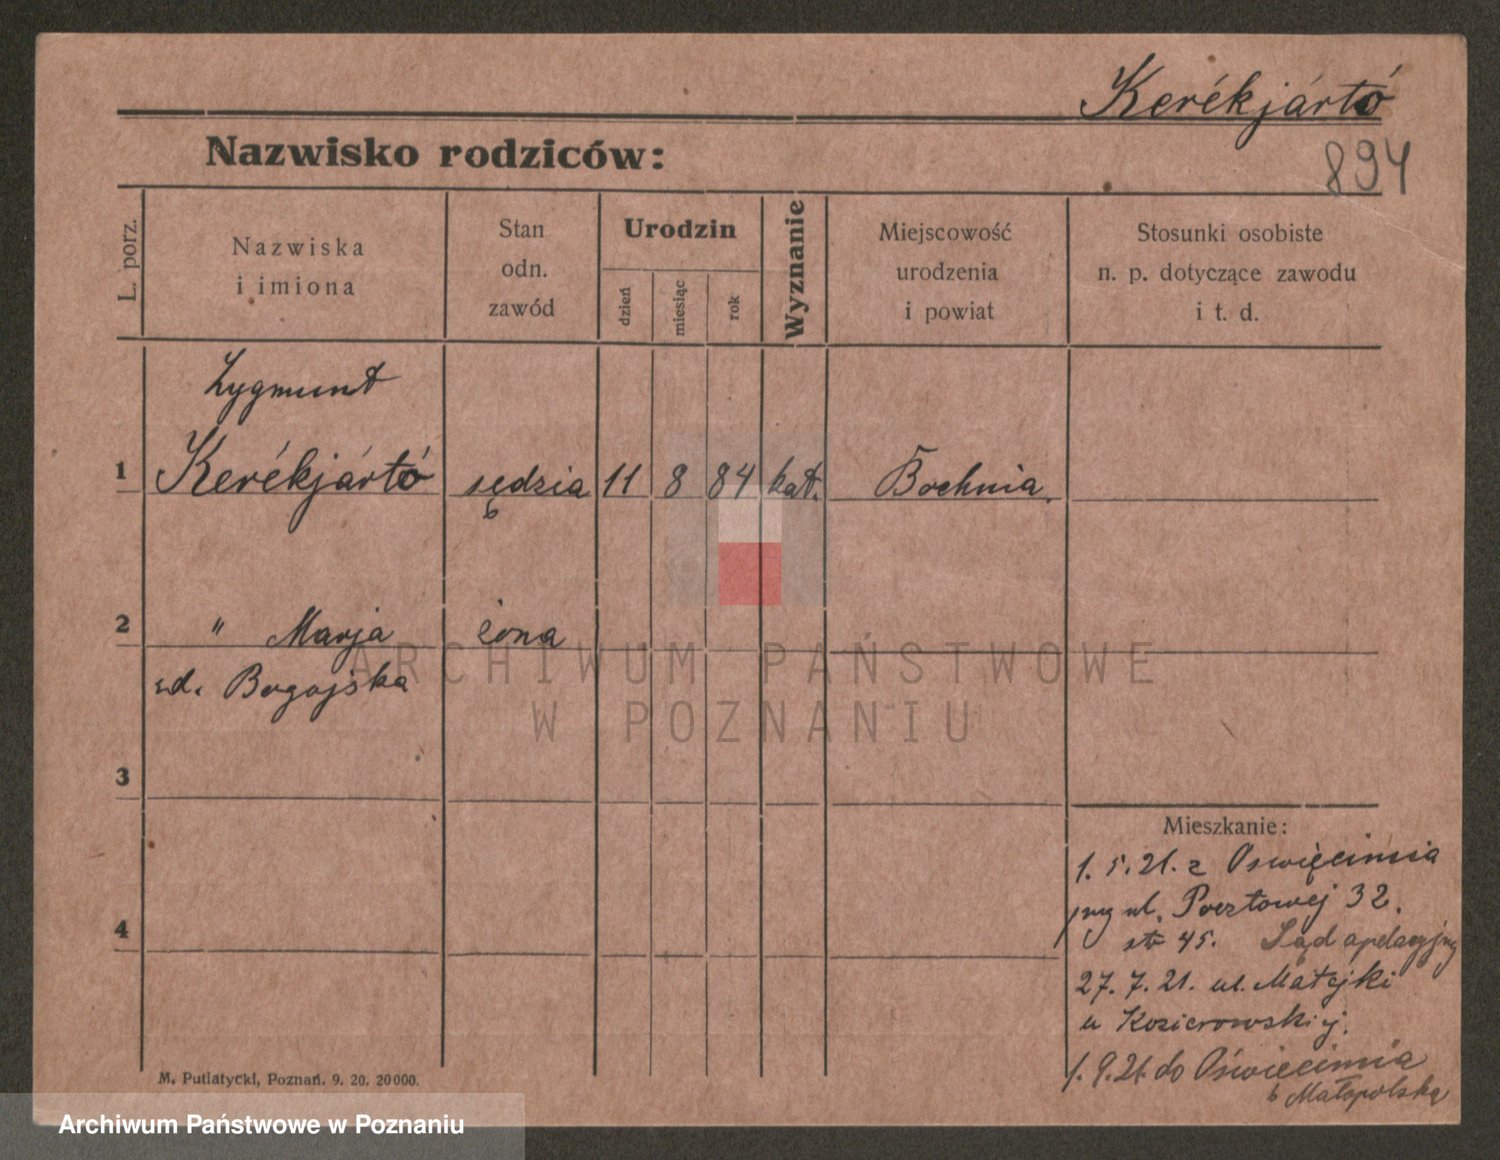 Kerékjártó
894
Nazwisko rodziców:
L. porz.
Nazwiska
i imiona
Stan
odn.
zawód
Urodzin
dzień
miesiąc
rok
Wyznanie
Miejscowość
urodzenia
i powiat
Stosunki osobiste
n. p. dotyczące zawodu
i t. d.
Zygmunt
1 Kerékjártó sędzia 11 8 84 kat. Bochnia.
2 " Marja żona
zd. Bogojska
3
4
Mieszkanie:
1. 5. 21. z Oswięcimia
ul. Pocztowej 32.
45. Sąd apelacyjny
27. 7. 21. ul. Matejki
u Kozierowskiej.
1. 9. 21. do Oświęcimia
Małopolska
M. Putiatycki, Poznań. 9. 20. 20000.
ARCHIWUM PAŃSTWOWE
W POZNANIU
Archiwum Państwowe w Poznaniu